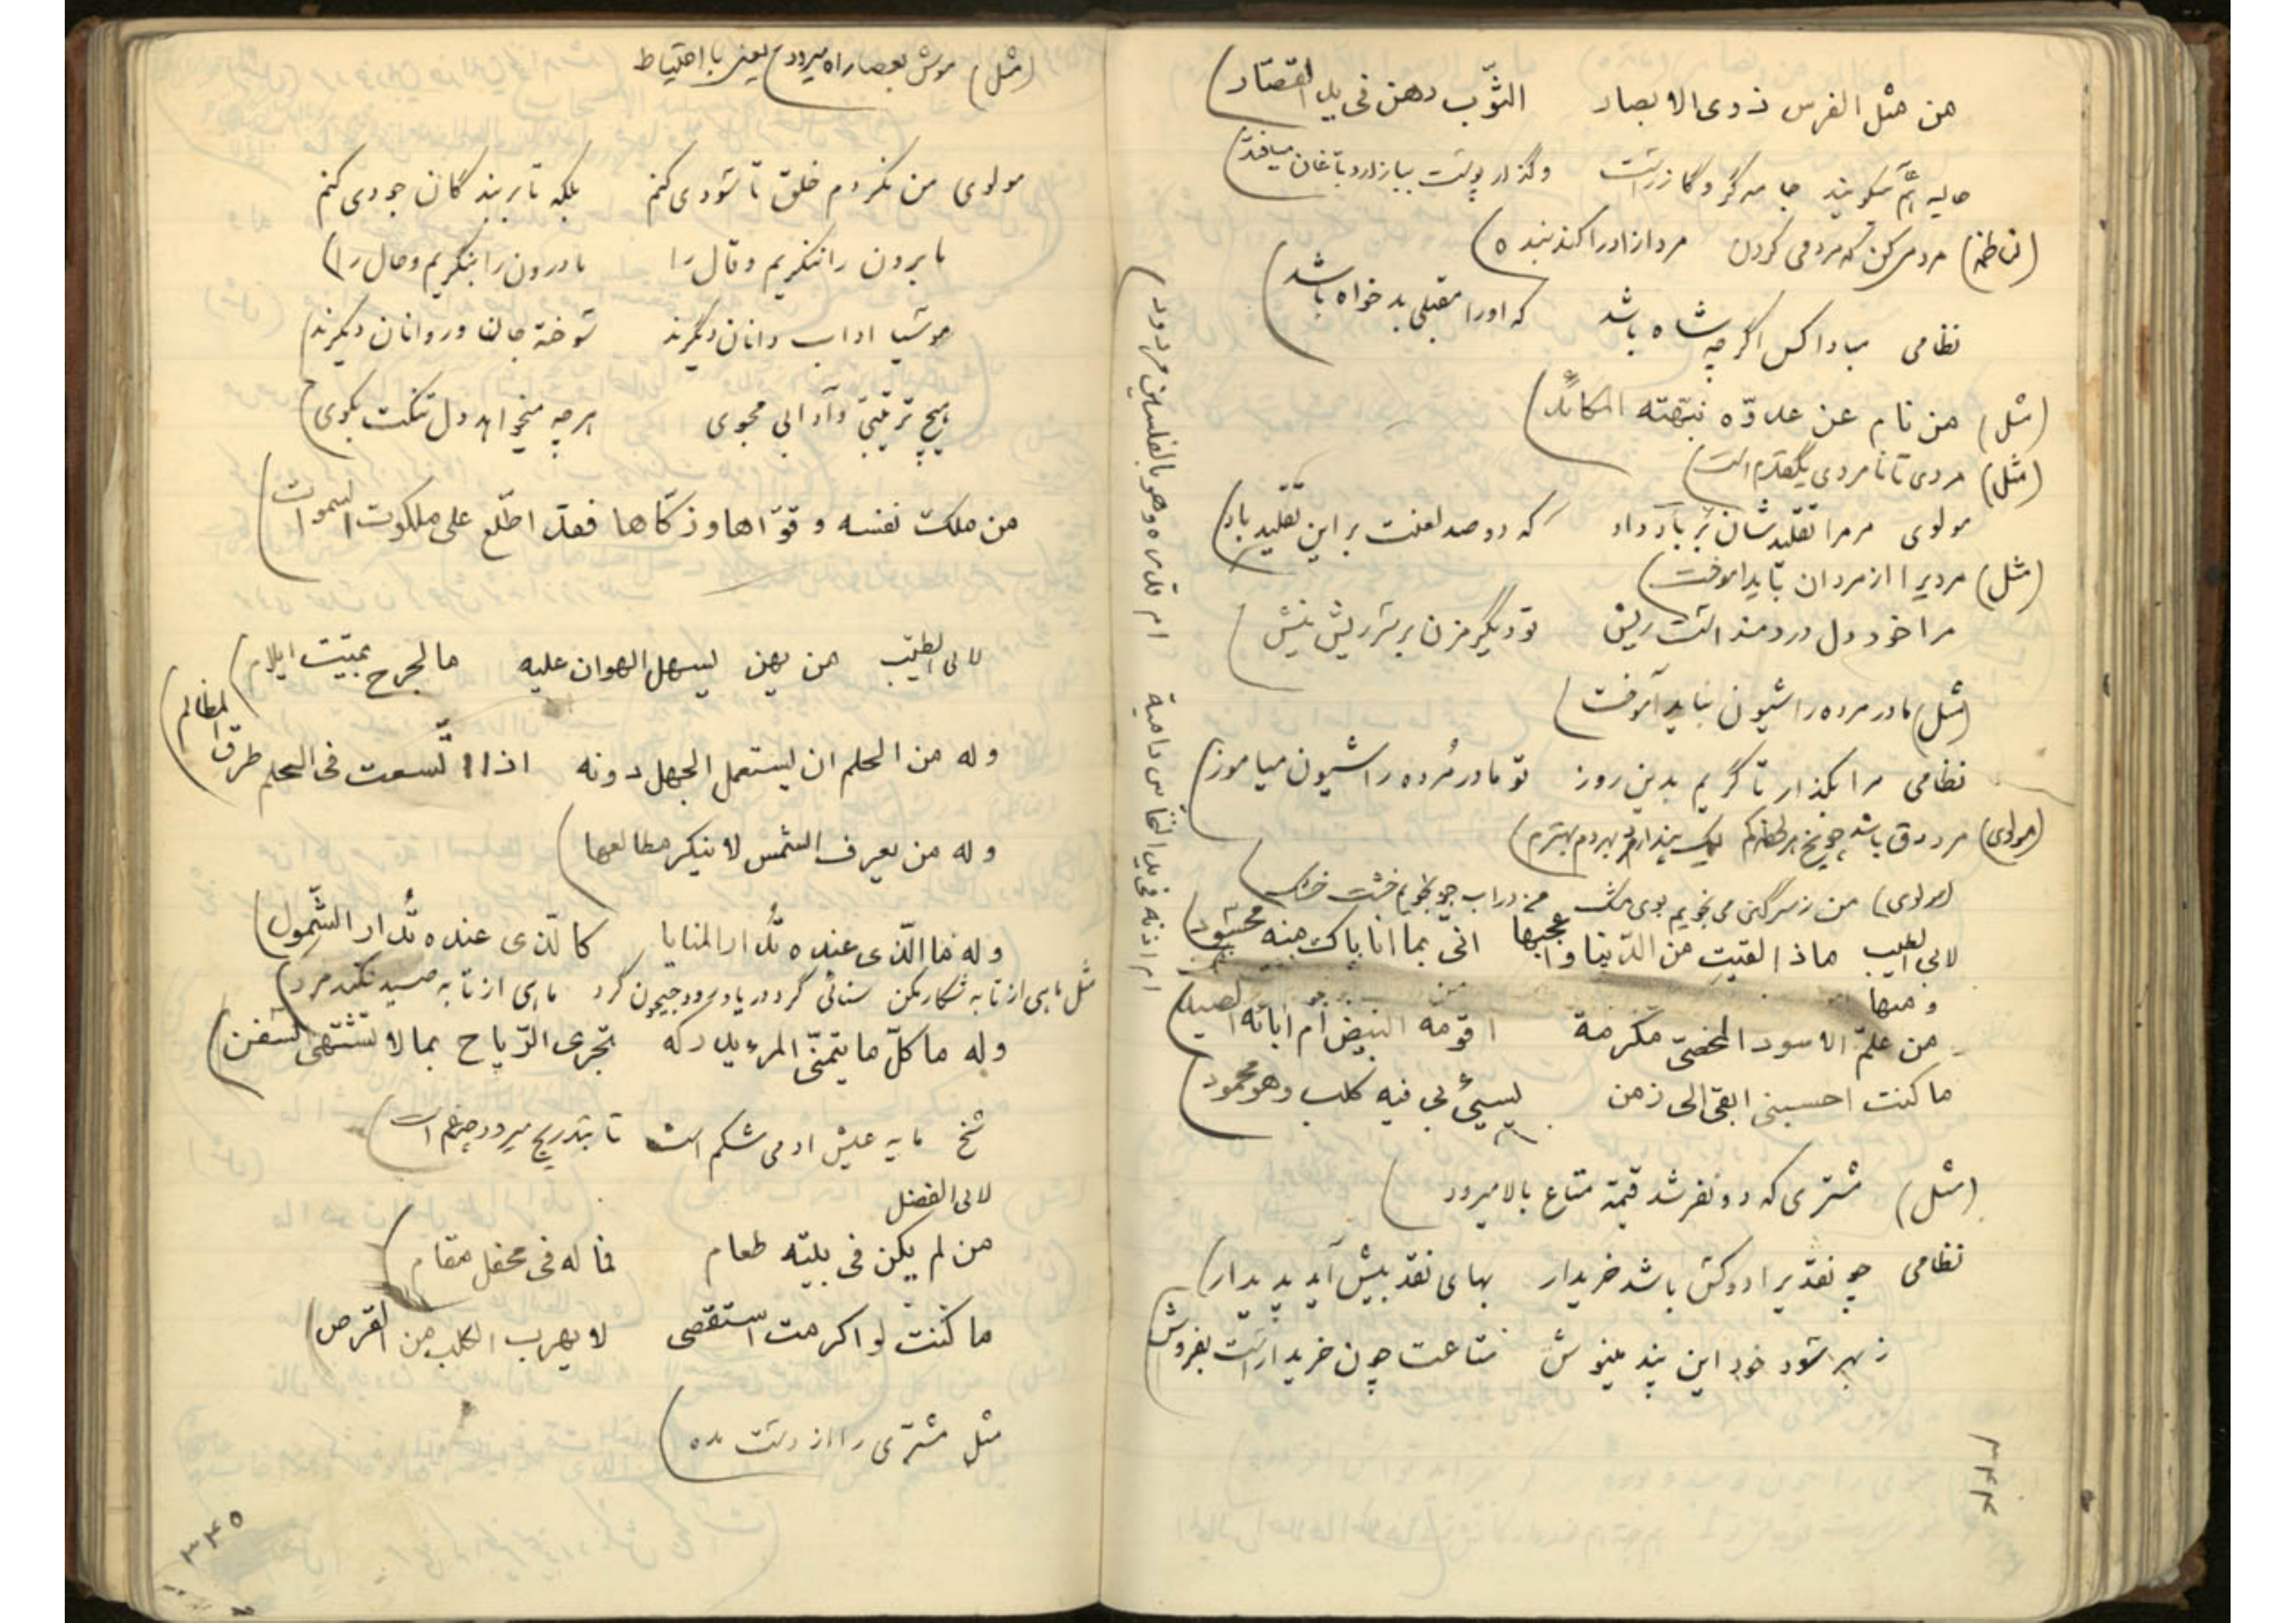 من مثل الفرس ذوی الابصار الثّوب رهن فی ید القصّار
حالیه هم میگویند جامه گرو گازر است وگذار پوست ببازار دباغان میافتد
(ناظم) مردمی کن که مردمی کردن مرد ازاد را کند بنده
نظامی مبادا کس اگرچه شاه باشد که او را مقبلی بدخواه باشد
(مثل) من نام عن عدوّه نبّهته المکائد
(مثل) مردی تا نامردی یکقدم است
مولوی مر مرا تقلیدشان بر باد داد که دوصد لعنت بر این تقلید باد
(مثل) مردی را از مردان باید اموخت
مرا خود دل دردمند است ریش تو دیگر مزن بر سر ریش نیش
(مثل) مادر مرده را شیون نباید آموخت
نظامی مرا بگذار تا گریم بدین روز تو مادر مُرده را شیون میاموز
(مولوی)
(مولوی) من ز سرگین می نجویم بوی مشک من در اب جو نجویم خشت خشک
لابی الطیب ماذا لقیت من الدّنیا واعجبها انی بما انا باک منه محسود
ومنها
من علّم الاسود المخصیّ مکرمة اقومه البیض أم اباؤه الصید
ام اذنه فی ید النخّاس دامیة ام قدره وهو بالفلسین مردود
ما کنت احسبنی ابقی الی زمن یسیئ بی فیه کلب وهو محمود
(مثل) مشتری که دو نفر شد قیمة متاع بالا میرود
نظامی چو نقدی را دو کس باشد خریدار بهای نقد بیش آید پدیدار
ز بهر سود خود این پند بنیوش متاعت چون خریدار است بفروش
۳۴۴
(مثل) موش بعصا راه میرود یعنی با احتیاط
مولوی من نکردم خلق تا سودی کنم بلکه تا بر بندگان جودی کنم
ما برون را ننگریم و قال را ما درون را بنگریم و حال را
موسیا اداب دانان دیگرند سوخته جان و روانان دیگرند
هیچ ترتیبی و آدابی مجوی هرچه میخواهد دل تنگت بگوی
من ملک نفسه و قوّاها و زکّاها فقد اطّلع علی ملکوت السموات
لابی الطیّب من یهن یسهل الهوان علیه ما لجرح بمیّت ایلام
وله من الحلم ان یستعمل الجهل دونه اذا اتّسعت فی الحلم طرق المظالم
وله من یعرف الشمس لا ینکر مطالعها
وله فما الّذی عنده تُدار المنایا کالّذی عنده تُدار الشّمول
مثل ماهی از تابه شکار مکن سنائی گرد دریا و رود جیحون گرد ماهی از تابه صید نکند مرد
وله ما کلّ ما یتمنّی المرء یدرکه تجری الرّیاح بما لا تشتهی السّفن
شیخ مایه عیش ادمی شکم است تا بتدریج میرود چه غم است
لابی الفضل
من لم یکن فی بیته طعام فما له فی محفل مقام
ما کنت لو اکرمت استقصی لا یهرب الکلب من القرص
مثل مشتری را از دست مده
۳۴۵